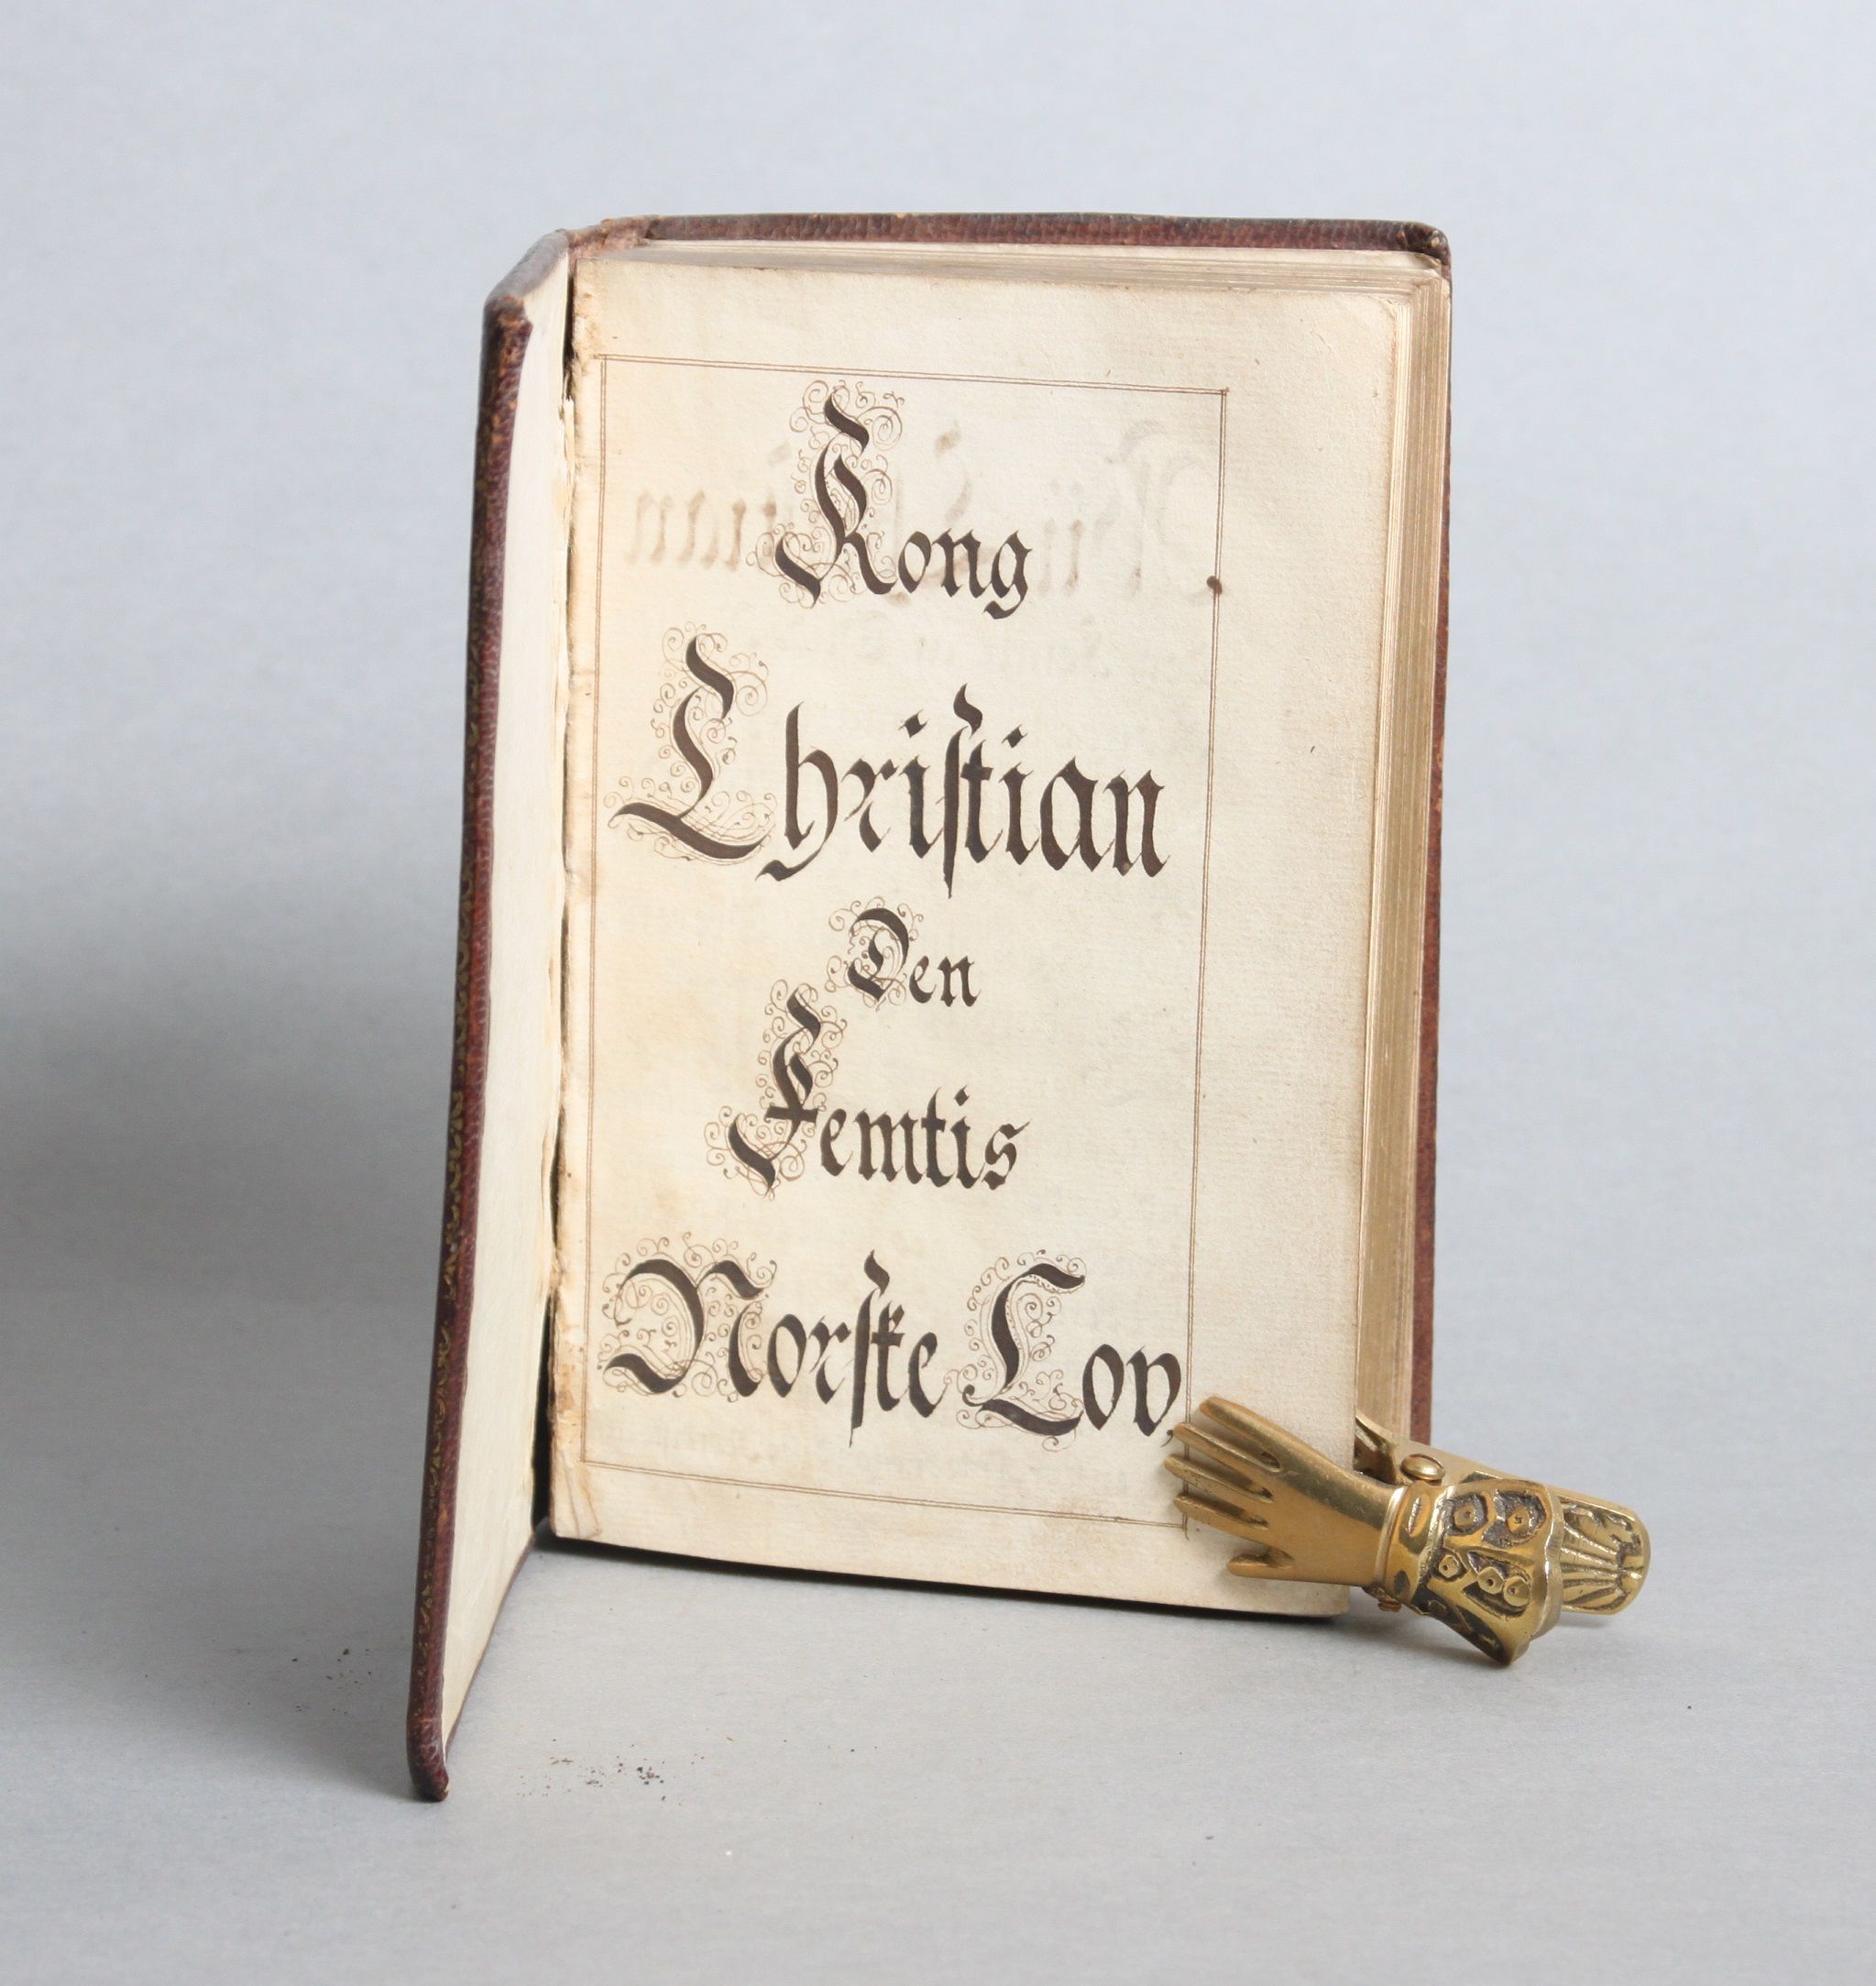 Kong
Chriſtian
Den
Femtis
Norſke Lov,